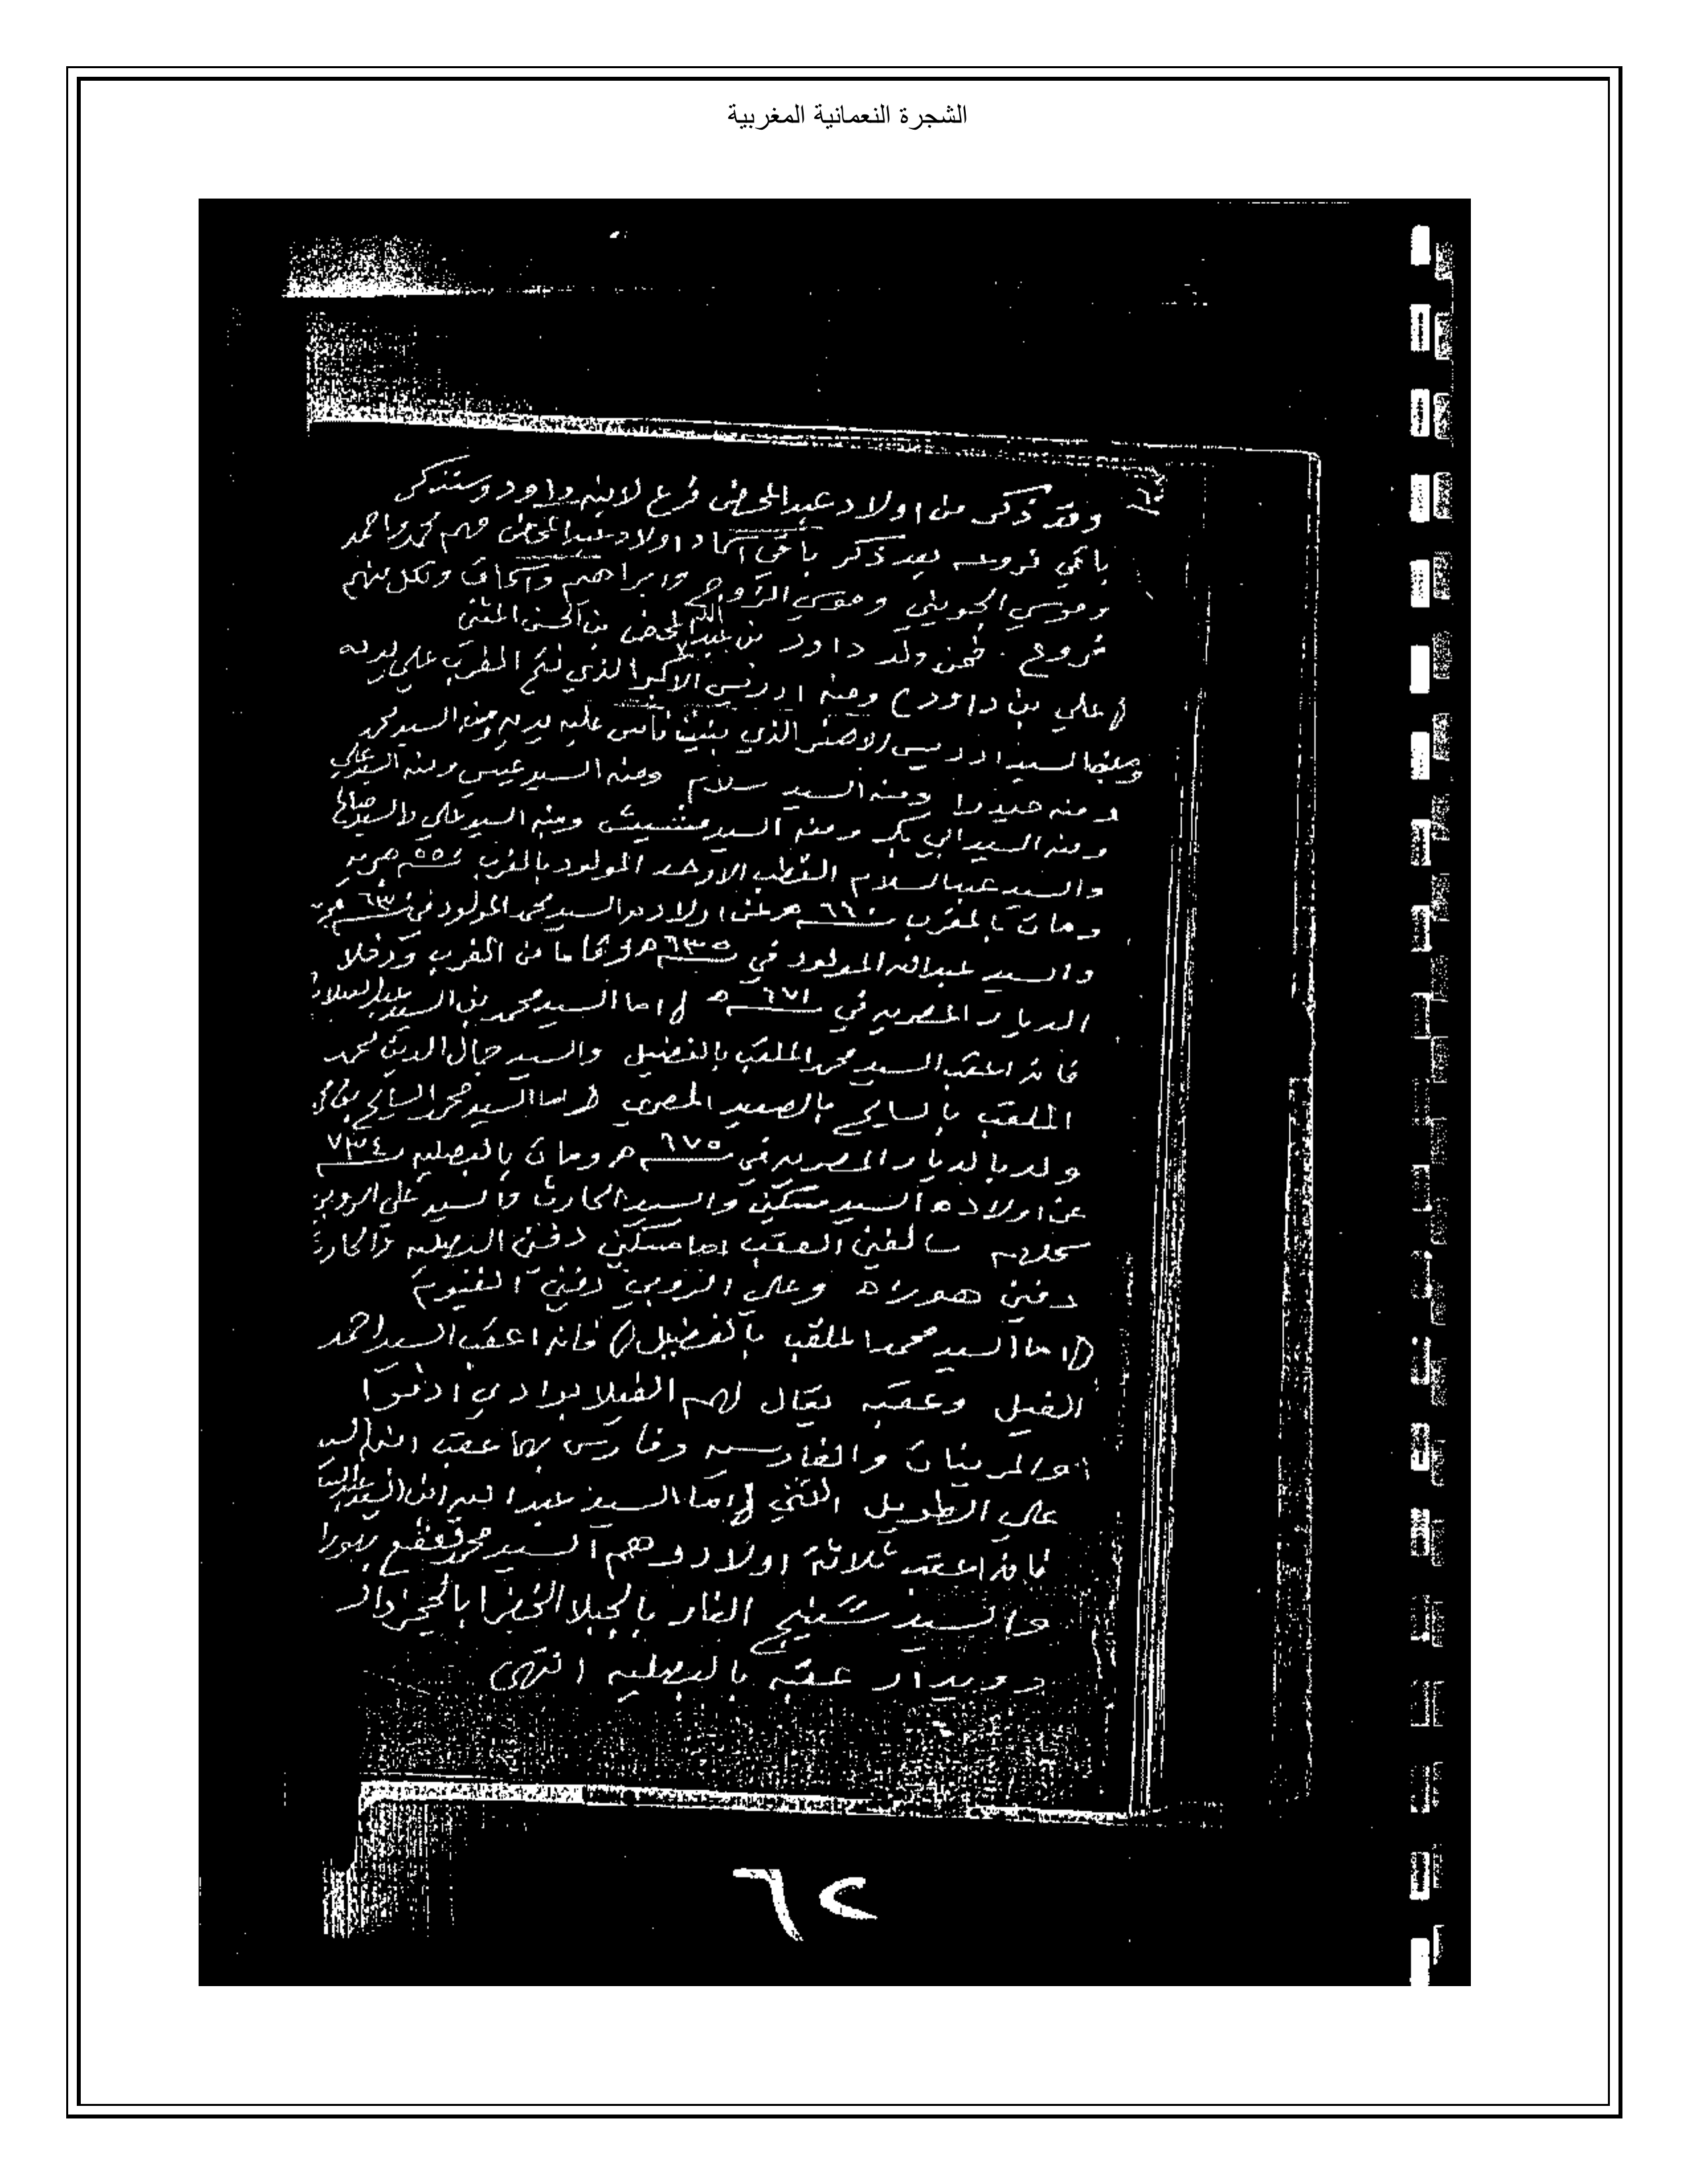 الشجرة النعمانية المغربية
وقد ذكر من اولاد عبدالمحض فرع لابنه داود وسنذكر
باقي فروعه بعد ذكر باقي اسماء اولاد عبدالمحض منهم محمد واحمد
وموسي الجويني وموسي الزوج وابراهيم واسحاق ولكل منهم
فروع . فمن ولد داود بن عبد الله المحض بن الحسن المثنى
(علي بن داود) ومنه ادريس الاكبر الذي فتح المغرب علي يديه
السيد ادريس الاصغر الذي بنيت فاس عليه يديه ومنه السيد محمد
ومنه حيدرا ومنه السيد سلام ومنه السيد عيسي ومنه السيد علي
ومنه السيد ابي بكر ومنه السيد مشيش ومنه السيد علي والسيد صالح
والسيد عبدالسلام القطب الاوحد المولود بالمغرب ٥٥٠ هجريه
ومات بالمغرب ٦٦٠ هـ عن اولاده السيد محمد المولود في ٦٣٠
والسيد عبدالله المولود في ٦٣٥ هـ من المغرب ودخلا
الديار المصريه في ٦٧١ هـ (اما السيد محمد بن السيد عبدالسلام
فانه اعقب السيد محمد الملقب بالفضيل والسيد جمال الدين محمد
الملقب بالسايح بالصعيد المصري (اما السيد محمد السايح
ولد بالديار المصريه في ٦٧٥ هـ ومات بالبصليه ٧٣٤
عن اولاده السيد مسكين والسيد الحارث والسيد علي الروبي
العقب اما مسكين دفين البصليه والحارث
دفين هوراه وعلي الروبي دفين الفيوم
(اما السيد محمد الملقب بالفضيل) فانه اعقب السيد احمد
الفيل وعقبه يقال لهم الفيلا بوادي ادفوا
والفارسيه وفارس بها عقب
علي الطويل (اما السيد عبد الله ابن السيد
فانه اعقب ثلاثة اولاد وهم السيد محمد
والسيد الفار بالجبلا الخضرا
دويدار عقبه بالبصليه انتهى
٦٢